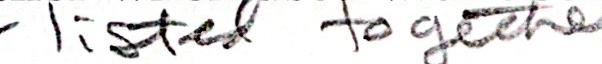 - listed togethe